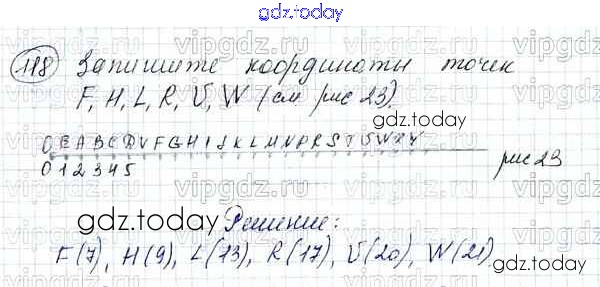 gdz.today
118 Запишите координаты точек
F, H, L, R, U, W (см рис 23).
gdz.today
O E A B C D V F G H I J K L M N P R S T U W X Y
0 1 2 3 4 5 рис 23
gdz.today Решение:
F(7), H(9), L(13), R(17), U(20), W(21)
gdz.today